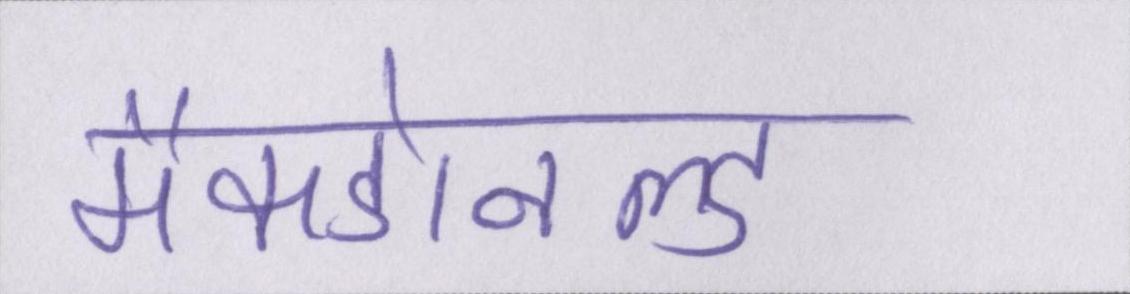 मैकडोनल्ड